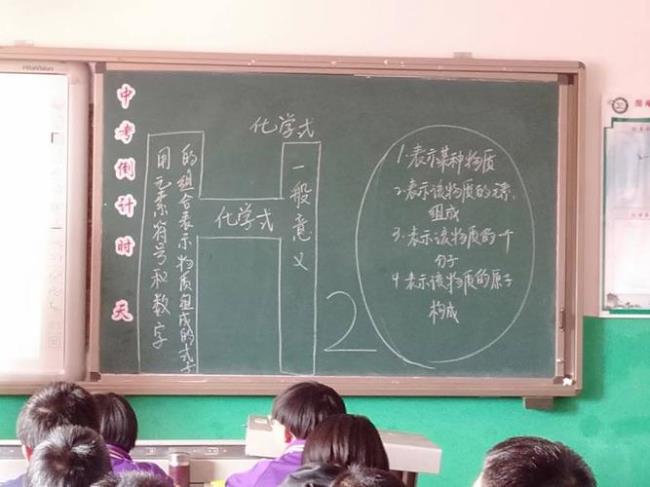 HiteVision
中考倒计时 天
化学式
用元素符号和数字
的组合表示物质组成的式子
化学式
一般意义
2
1.表示某种物质
2.表示该物质的元素
组成
3.表示该物质的一个
分子
4.表示该物质的原子
构成